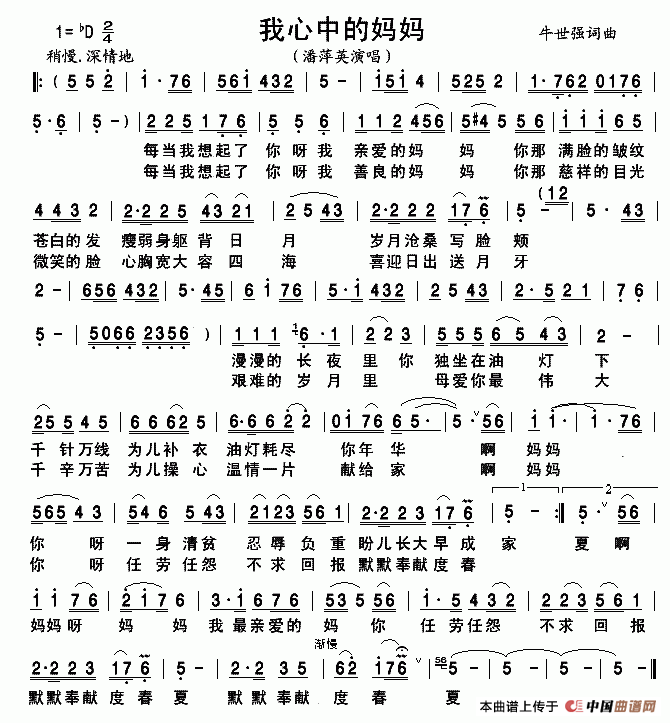 我心中的妈妈
1=♭D 2/4
牛世强词曲
稍慢.深情地
（潘萍英演唱）
‖: ( 5 5 2 | 1· 76 | 561 432 | 5 - | 1514 | 525 | 1·762 0176 |
5·6 | 5 - ) | 225 176 | 5 5 6 | 112 456 | 5#4 5 | 556 | 1116 65 |
每当我想起了 你呀我 亲爱的妈 妈 你那 满脸的皱纹
每当我想起了 你呀我 善良的妈 妈 你那 慈祥的目光
4432 | 2·225 43 21 | 2543 | 2·225 176 | 5 - (12 | 5·643 |
苍白的发 瘦弱身躯 背 日 月 岁月沧桑 写 脸 颊
微笑的脸 心胸宽大 容 四 海 喜迎日出 送 月 牙
2 - | 656 432 | 5·45 | 656 432 | 5·643 | 2·521 | 76 |
5 - | 5066 2356 ) | 1 1 1 | 6·1 | 223 | 5556 543 | 2 - |
漫漫的 长 夜 里 你 独坐在油 灯 下
艰难的 岁 月 里 母爱你最 伟 大
25545 | 6662 | 6·662 | 3·2 | 01 76 65· | 5· 56 | 1 1 - | 1·76 |
千 针万线 为儿补 衣 油灯耗尽 你年 华 啊 妈妈
千 辛万苦 为儿操 心 温情一片 献给 家 啊 妈妈
565 43 | 546 543 | 2123 561 | 2·223 176 | 1 5 - :‖ 2 5· 56 |
你 呀 一 身 清贫 忍 辱 负 重 盼儿长大 早 成 家 夏 啊
你 呀 任 劳任怨 不 求 回 报 默默奉献 度 春
1 1 76 | 2176 | 3·335 6 1 | 2·123 | 453 256 | 5212 561 |
妈妈 呀 妈 妈 我 最亲爱的 妈 妈 你 任 劳任怨 不 求 回 报
渐慢
2·223 176 | 5 - | 3·335 | 62 2·176 | 5 - | 5 - | 5 - ‖
默默奉献 度 春 夏 默默奉献 度 春 夏
本曲谱上传于 中国曲谱网